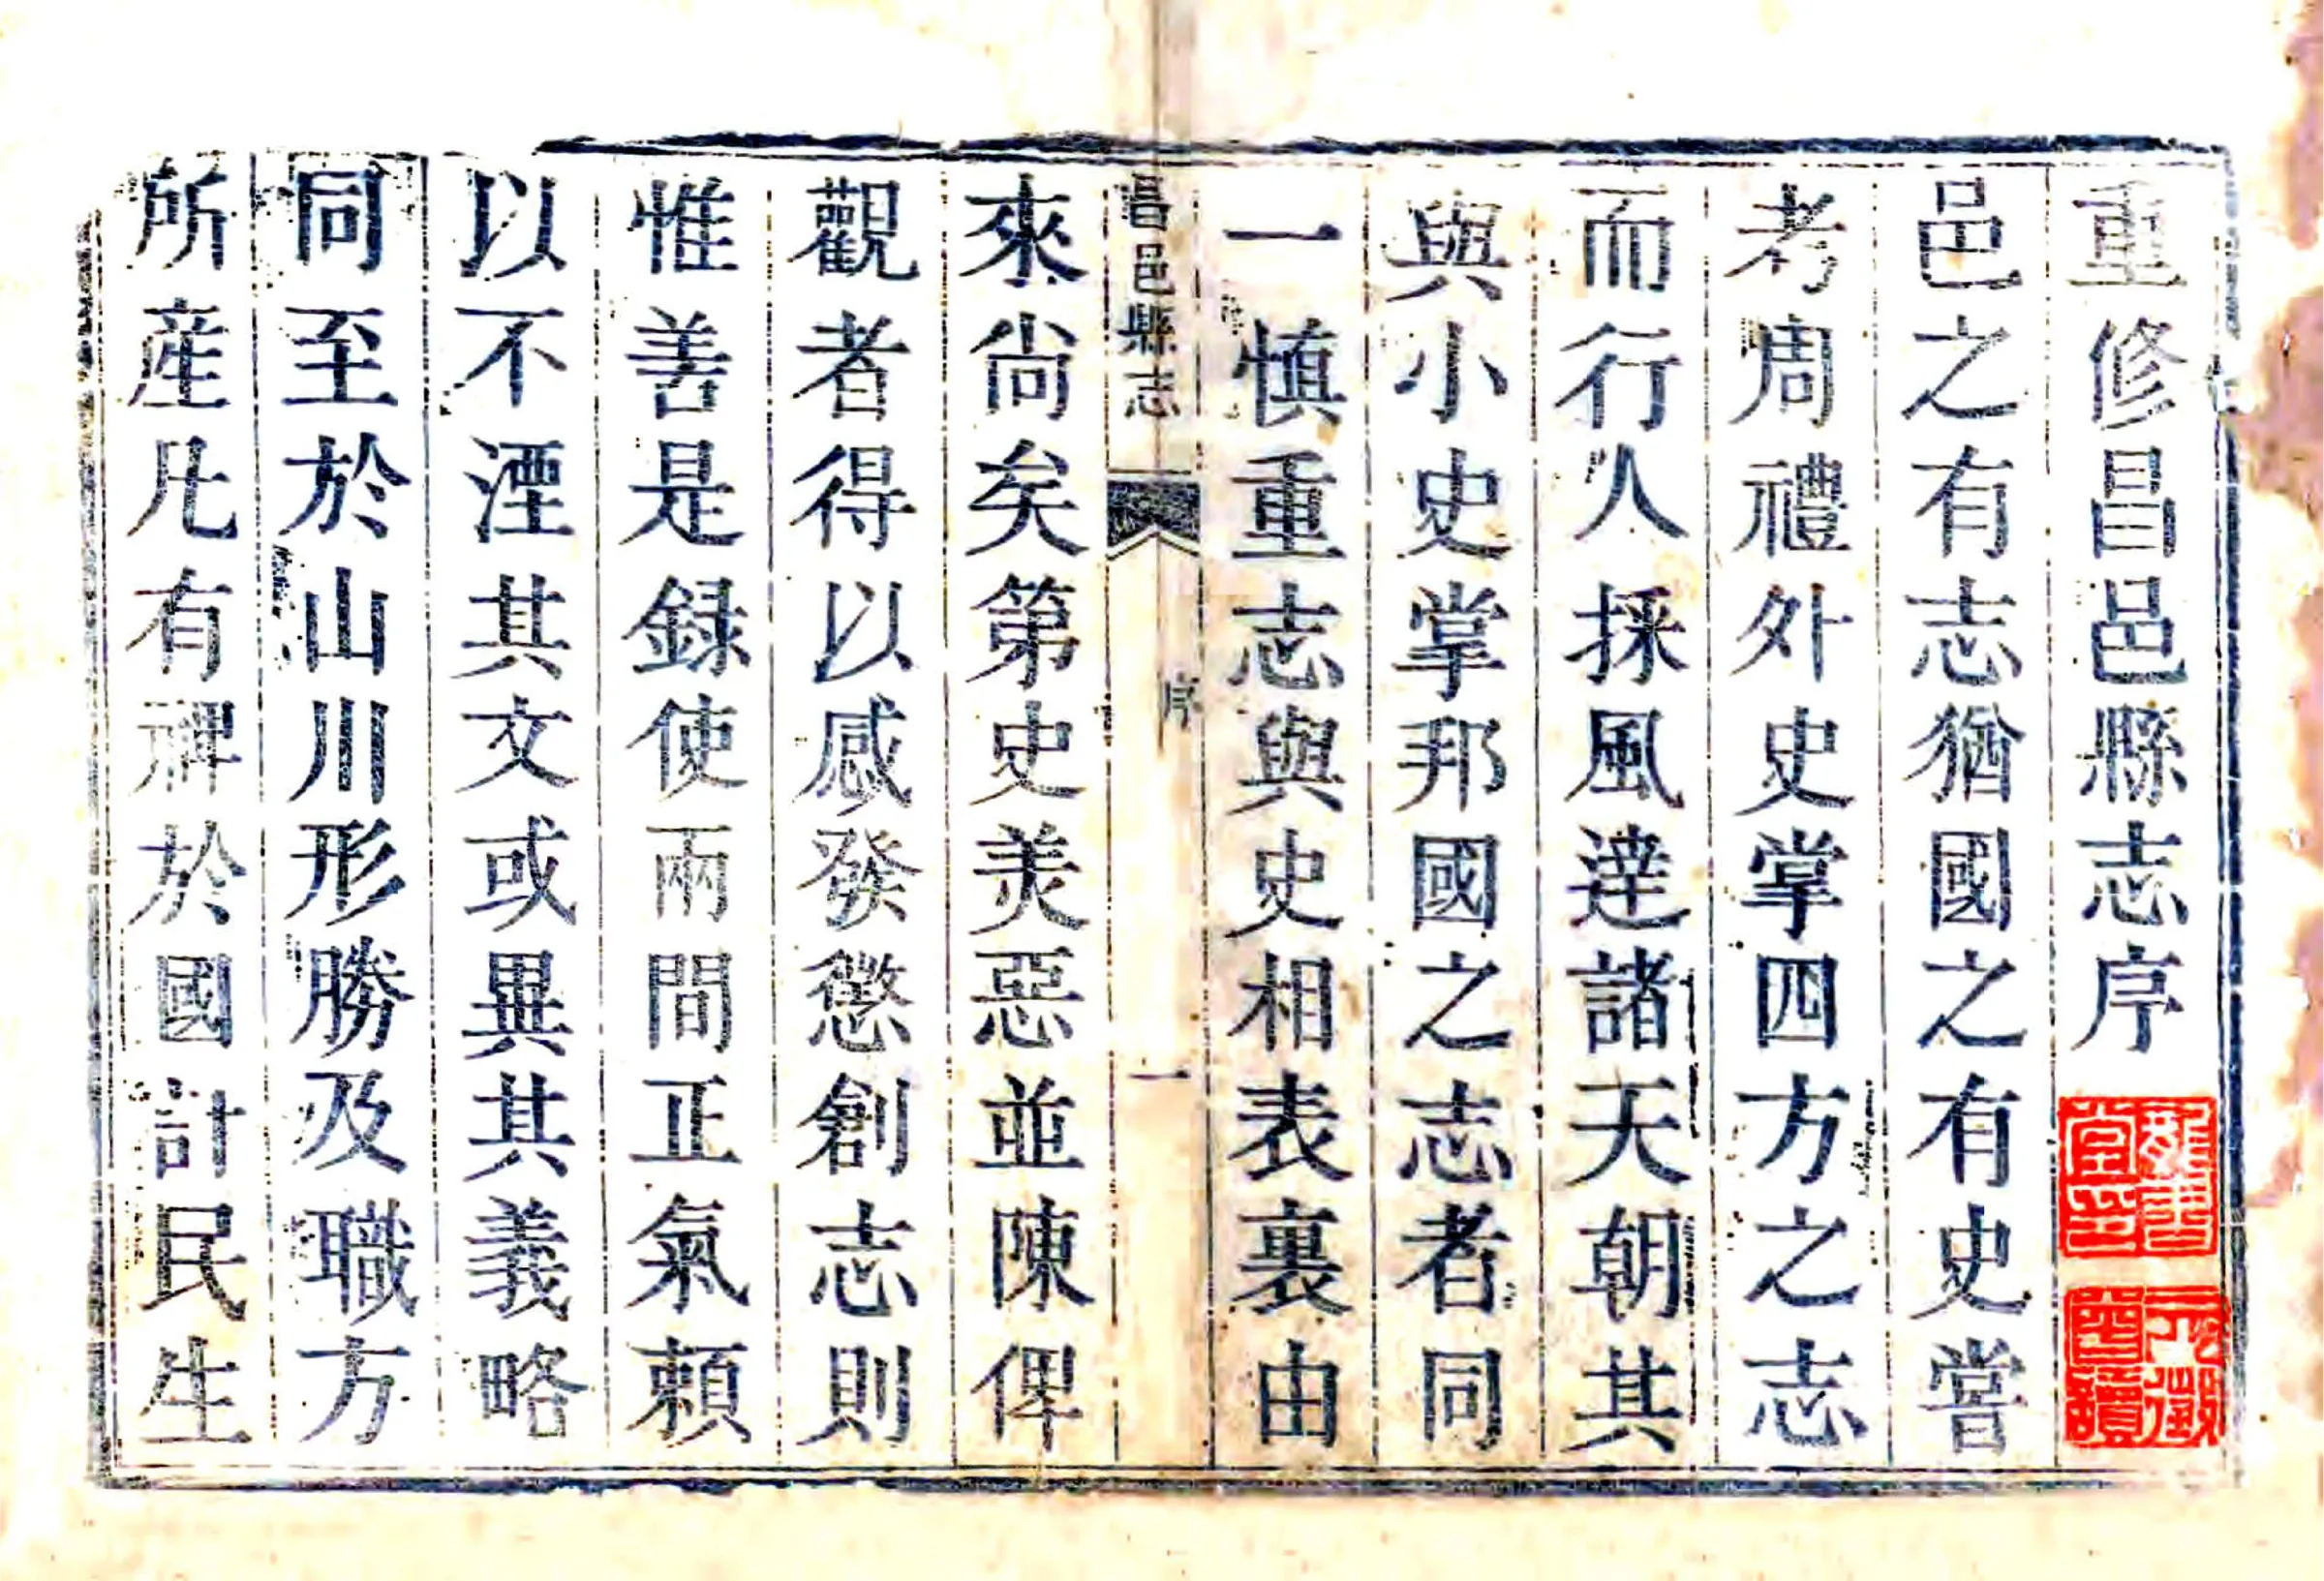 重修昌邑縣志序
邑之有志猶國之有史嘗
考周禮外史掌四方之志
而行人採風達諸天朝其
與小史掌邦國之志者同
一慎重志與史相表裏由
昌邑縣志
序
一
來尚矣第史美惡並陳俾
觀者得以感發懲創志則
惟善是録使兩間正氣賴
以不湮其文或異其義略
同至於山川形勝及職方
所産凡有裨於國計民生